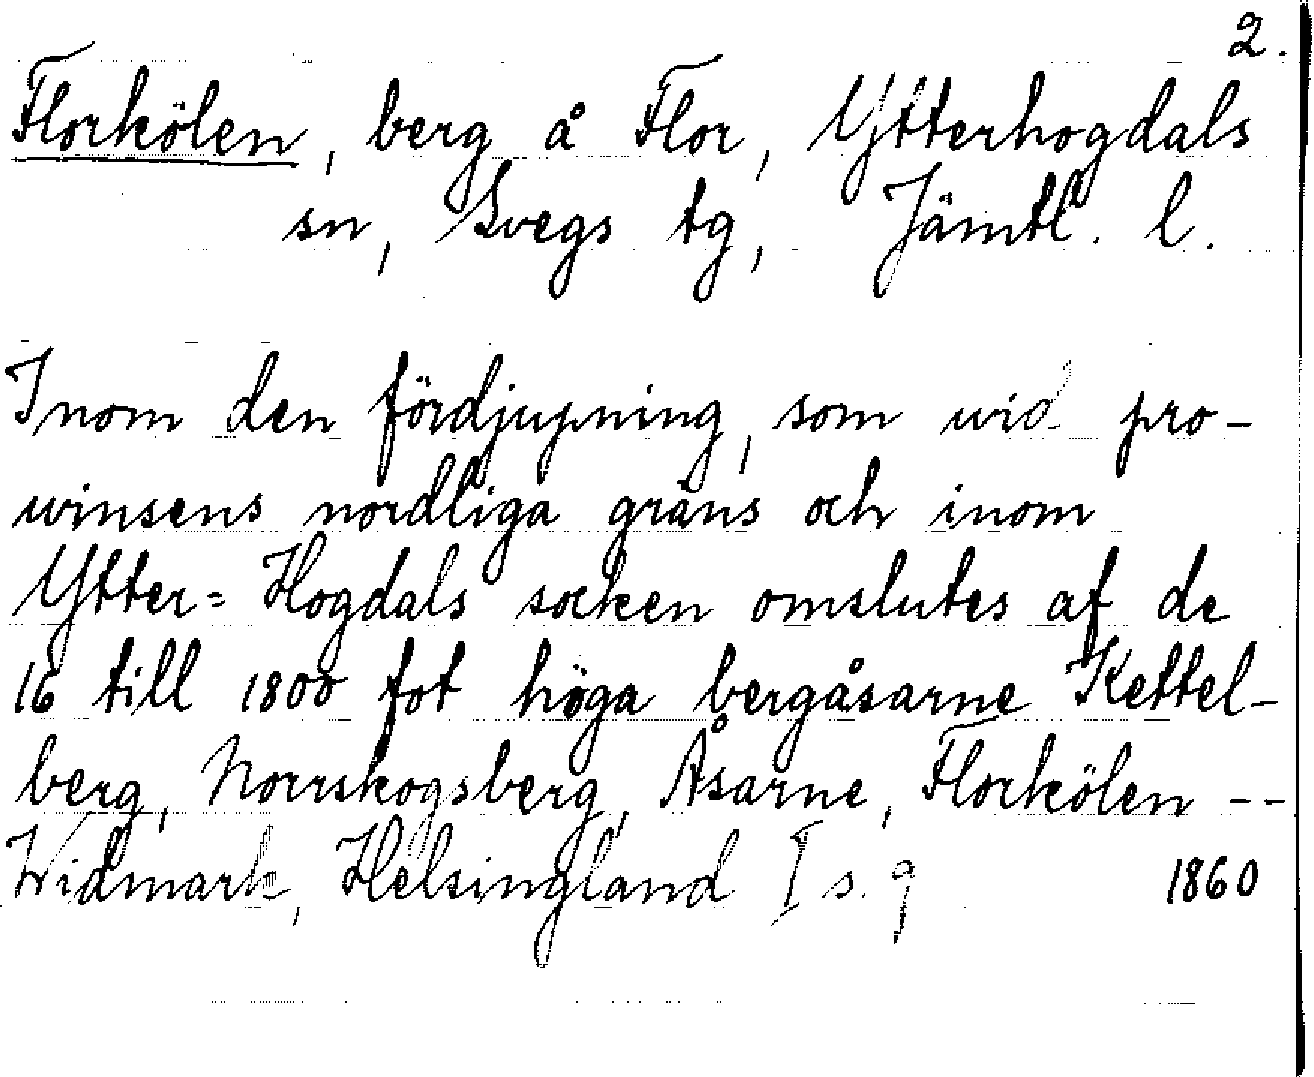 2.
Florkölen, berg å Flor, Ytterhogdals
sn, Svegs tg, Jämtl. l.
Inom den fördjupning, som wid pro-
winsens nordliga gräns och inom
Ytter=Hogdals socken omslutes af de
16 till 1800 fot höga bergåsarne Kettel-
berg, Norrskogsberg, Åsarne, Florkölen --
Widmark, Helsingland I s. 9 1860